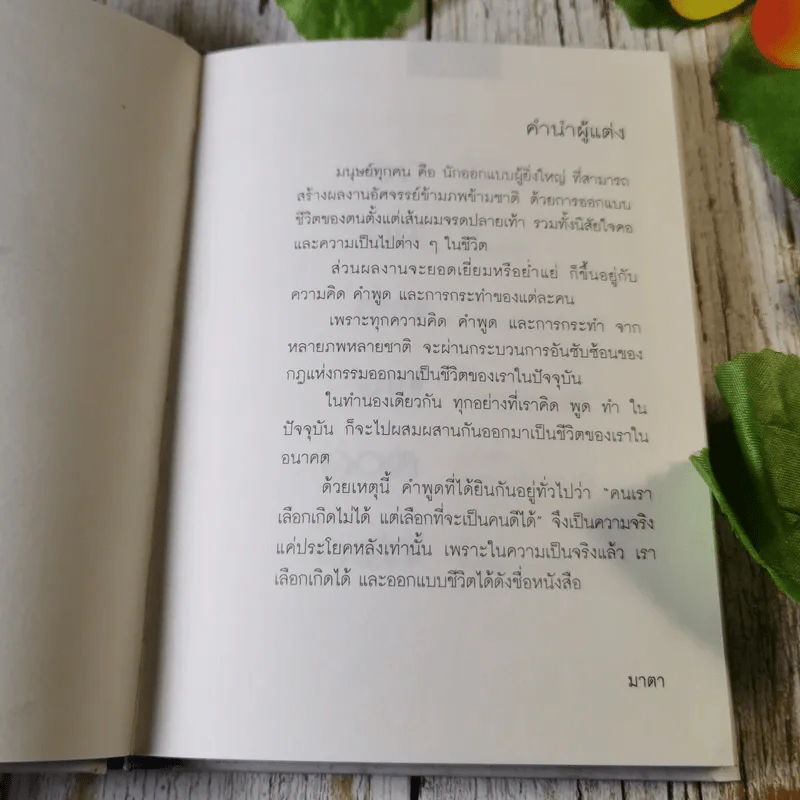 คำนำผู้แต่ง
มนุษย์ทุกคน คือ นักออกแบบผู้ยิ่งใหญ่ ที่สามารถ
สร้างผลงานอัศจรรย์ข้ามภพข้ามชาติ ด้วยการออกแบบ
ชีวิตของตนตั้งแต่เส้นผมจรดปลายเท้า รวมทั้งนิสัยใจคอ
และความเป็นไปต่าง ๆ ในชีวิต
ส่วนผลงานจะยอดเยี่ยมหรือย่ำแย่ ก็ขึ้นอยู่กับ
ความคิด คำพูด และการกระทำของแต่ละคน
เพราะทุกความคิด คำพูด และการกระทำ จาก
หลายภพหลายชาติ จะผ่านกระบวนการอันซับซ้อนของ
กฎแห่งกรรมออกมาเป็นชีวิตของเราในปัจจุบัน
ในทำนองเดียวกัน ทุกอย่างที่เราคิด พูด ทำ ใน
ปัจจุบัน ก็จะไปผสมผสานกันออกมาเป็นชีวิตของเราใน
อนาคต
ด้วยเหตุนี้ คำพูดที่ได้ยินกันอยู่ทั่วไปว่า "คนเรา
เลือกเกิดไม่ได้ แต่เลือกที่จะเป็นคนดีได้" จึงเป็นความจริง
แค่ประโยคหลังเท่านั้น เพราะในความเป็นจริงแล้ว เรา
เลือกเกิดได้ และออกแบบชีวิตได้ดังชื่อหนังสือ
มาตา